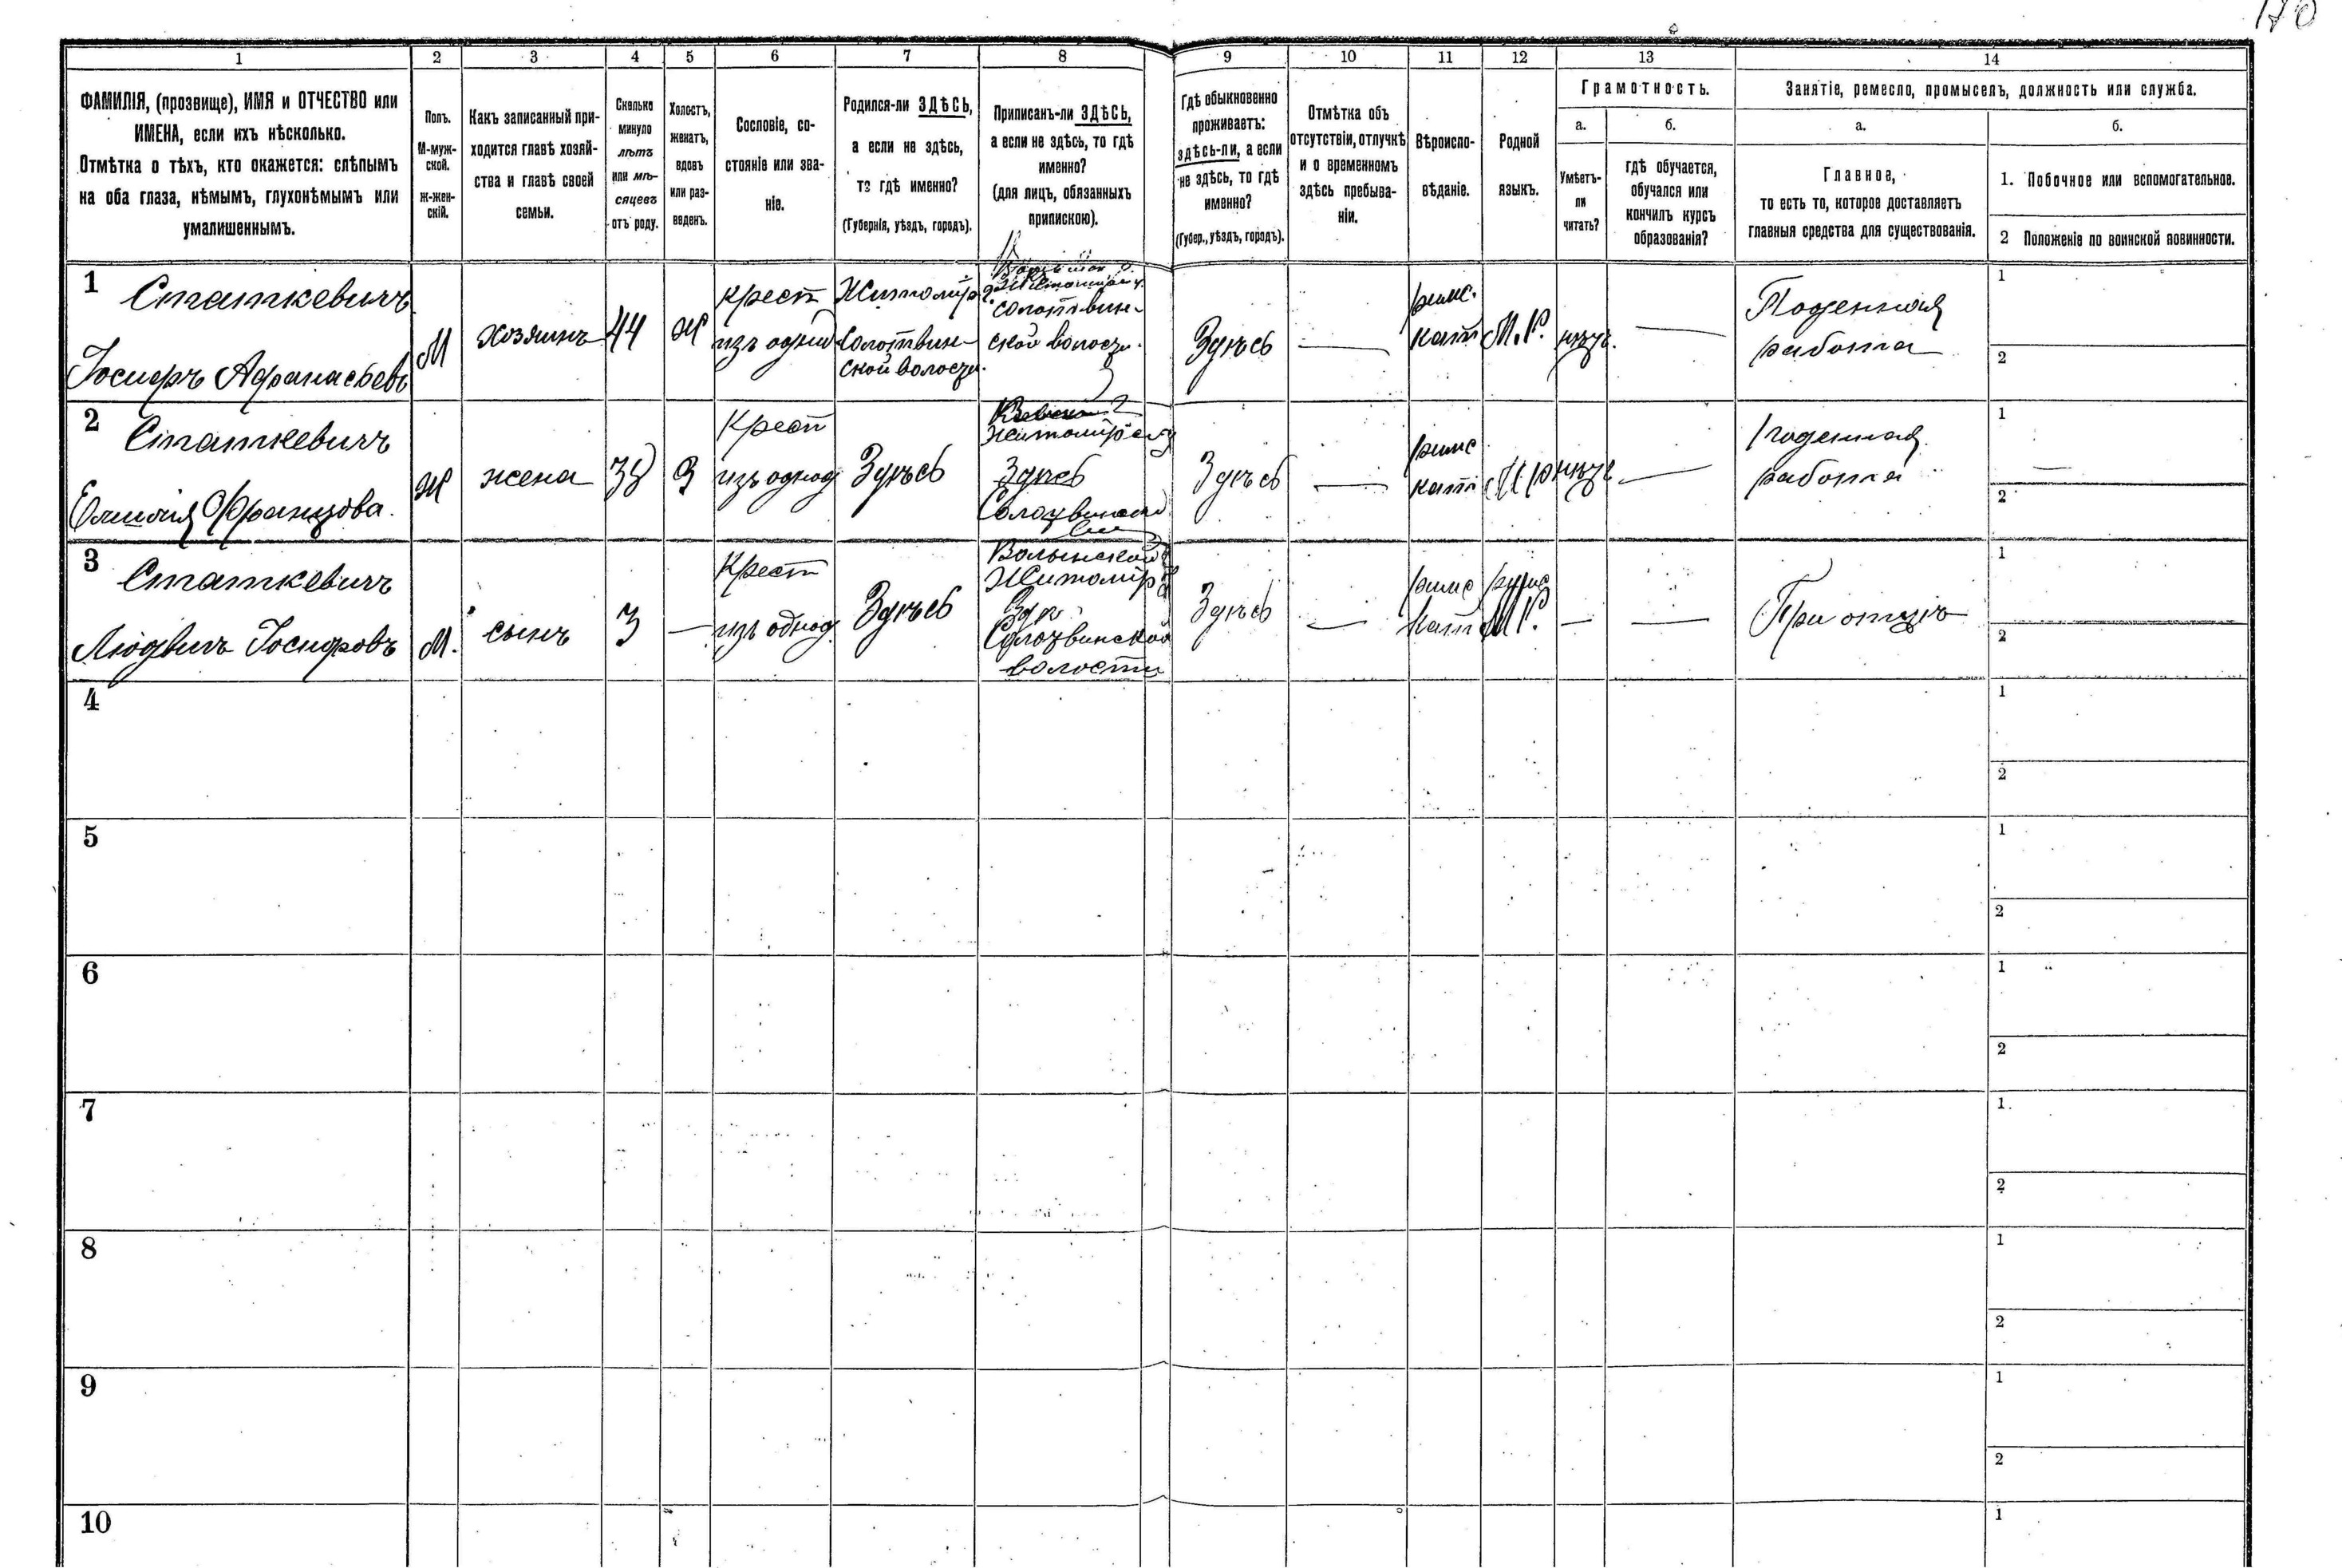 170
1
2
3
4
5
6
7
8
9
10
11
12
13
14
ФАМИЛІЯ, (прозвище), ИМЯ и ОТЧЕСТВО или
ИМЕНА, если ихъ нѣсколько.
Отмѣтка о тѣхъ, кто окажется: слѣпымъ
на оба глаза, нѣмымъ, глухонѣмымъ или
умалишеннымъ.
Полъ.
М-муж-
ской.
ж-жен-
скій.
Какъ записанный при-
ходится главѣ хозяй-
ства и главѣ своей
семьи.
Сколько
минуло
лѣтъ
или мѣ-
сяцевъ
отъ роду.
Холостъ,
женатъ,
вдовъ
или раз-
веденъ.
Сословіе, со-
стояніе или зва-
ніе.
Родился-ли ЗДѢСЬ,
а если не здѣсь,
то гдѣ именно?
(Губернія, уѣздъ, городъ).
Приписанъ-ли ЗДѢСЬ,
а если не здѣсь, то гдѣ
именно?
(для лицъ, обязанныхъ
припискою).
Гдѣ обыкновенно
проживаетъ:
здѣсь-ли, а если
не здѣсь, то гдѣ
именно?
(Губер., уѣздъ, городъ).
Отмѣтка объ
отсутствіи, отлучкѣ
и о временномъ
здѣсь пребыва-
ніи.
Вѣроиспо-
вѣданіе.
Родной
языкъ.
Грамотность.
а.
Умѣетъ-
ли
читать?
б.
гдѣ обучается,
обучался или
кончилъ курсъ
образованія?
Занятіе, ремесло, промыселъ, должность или служба.
а.
Главное,
то есть то, которое доставляетъ
главныя средства для существованія.
б.
1. Побочное или вспомогательное.
2 Положеніе по воинской повинности.
1
Статкевичъ
Іосифъ Афанасьевъ
М
хозяинъ
44
Ж
крест
изъ однод
Житомір
Солотвин-
ской волости.
солотвин-
ской волости.
Здѣсь
—
римс.
кат
М.Р.
—
Поденная
работа
1
2
2
Статкевичъ
Францова.
Ж
жена
38
З
Крест
изъ однод
Здѣсь
Житомір
Здѣсь
Здѣсь
—
римс
кат
—
поденная
работа
1
—
2
3
Статкевичъ
Людвигъ Іосифовъ
М.
сынъ
3
—
Крест
изъ однод.
Здѣсь
Волынской
Житомір
Солотвинской
волости
Здѣсь
—
римс
кат
М.Р.
—
—
При отцѣ
1
2
4
1
2
5
1
2
6
1
2
7
1.
2
8
1
2
9
1
2
10
1